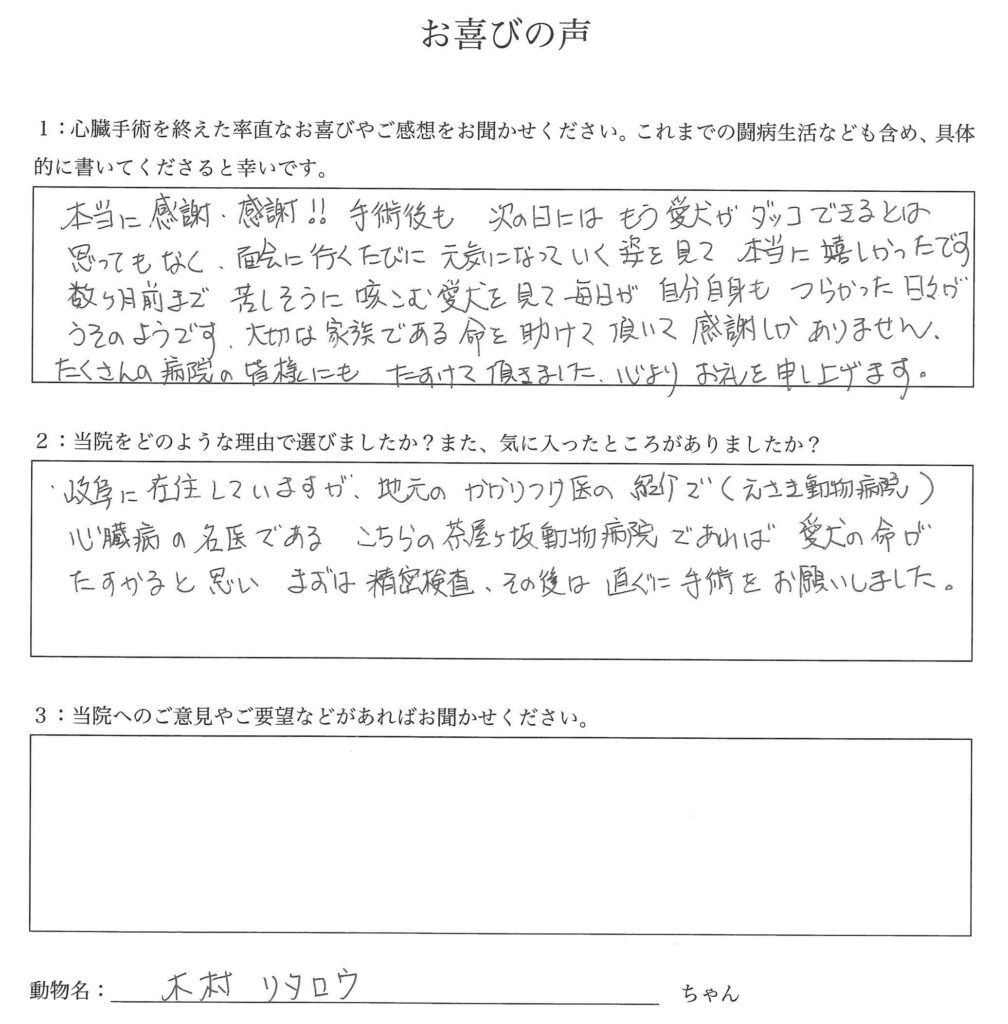 お喜びの声
１：心臓手術を終えた率直なお喜びやご感想をお聞かせください。これまでの闘病生活なども含め、具体
的に書いてくださると幸いです。
本当に感謝・感謝!! 手術後も 次の日には もう愛犬が ダッコできるとは
思ってもなく、面会に行くたびに 元気になっていく姿を見て 本当に嬉しかったです
数ヶ月前まで 苦しそうに咳こむ愛犬を見て毎日が 自分自身も つらかった日々が
うそのようです、大切な家族である命を助けて頂いて感謝しかありません、
たくさんの病院の皆様にも たすけて頂きました、心よりお礼を申し上げます。
２：当院をどのような理由で選びましたか？また、気に入ったところがありましたか？
岐阜に在住していますが、地元のかかりつけ医の紹介で（えさき動物病院）
心臓病の名医である こちらの茶屋ヶ坂動物病院であれば 愛犬の命が
たすかると思い まずは精密検査、その後は直ぐに手術をお願いしました。
３：当院へのご意見やご要望などがあればお聞かせください。
動物名： 木村 リタロウ ちゃん